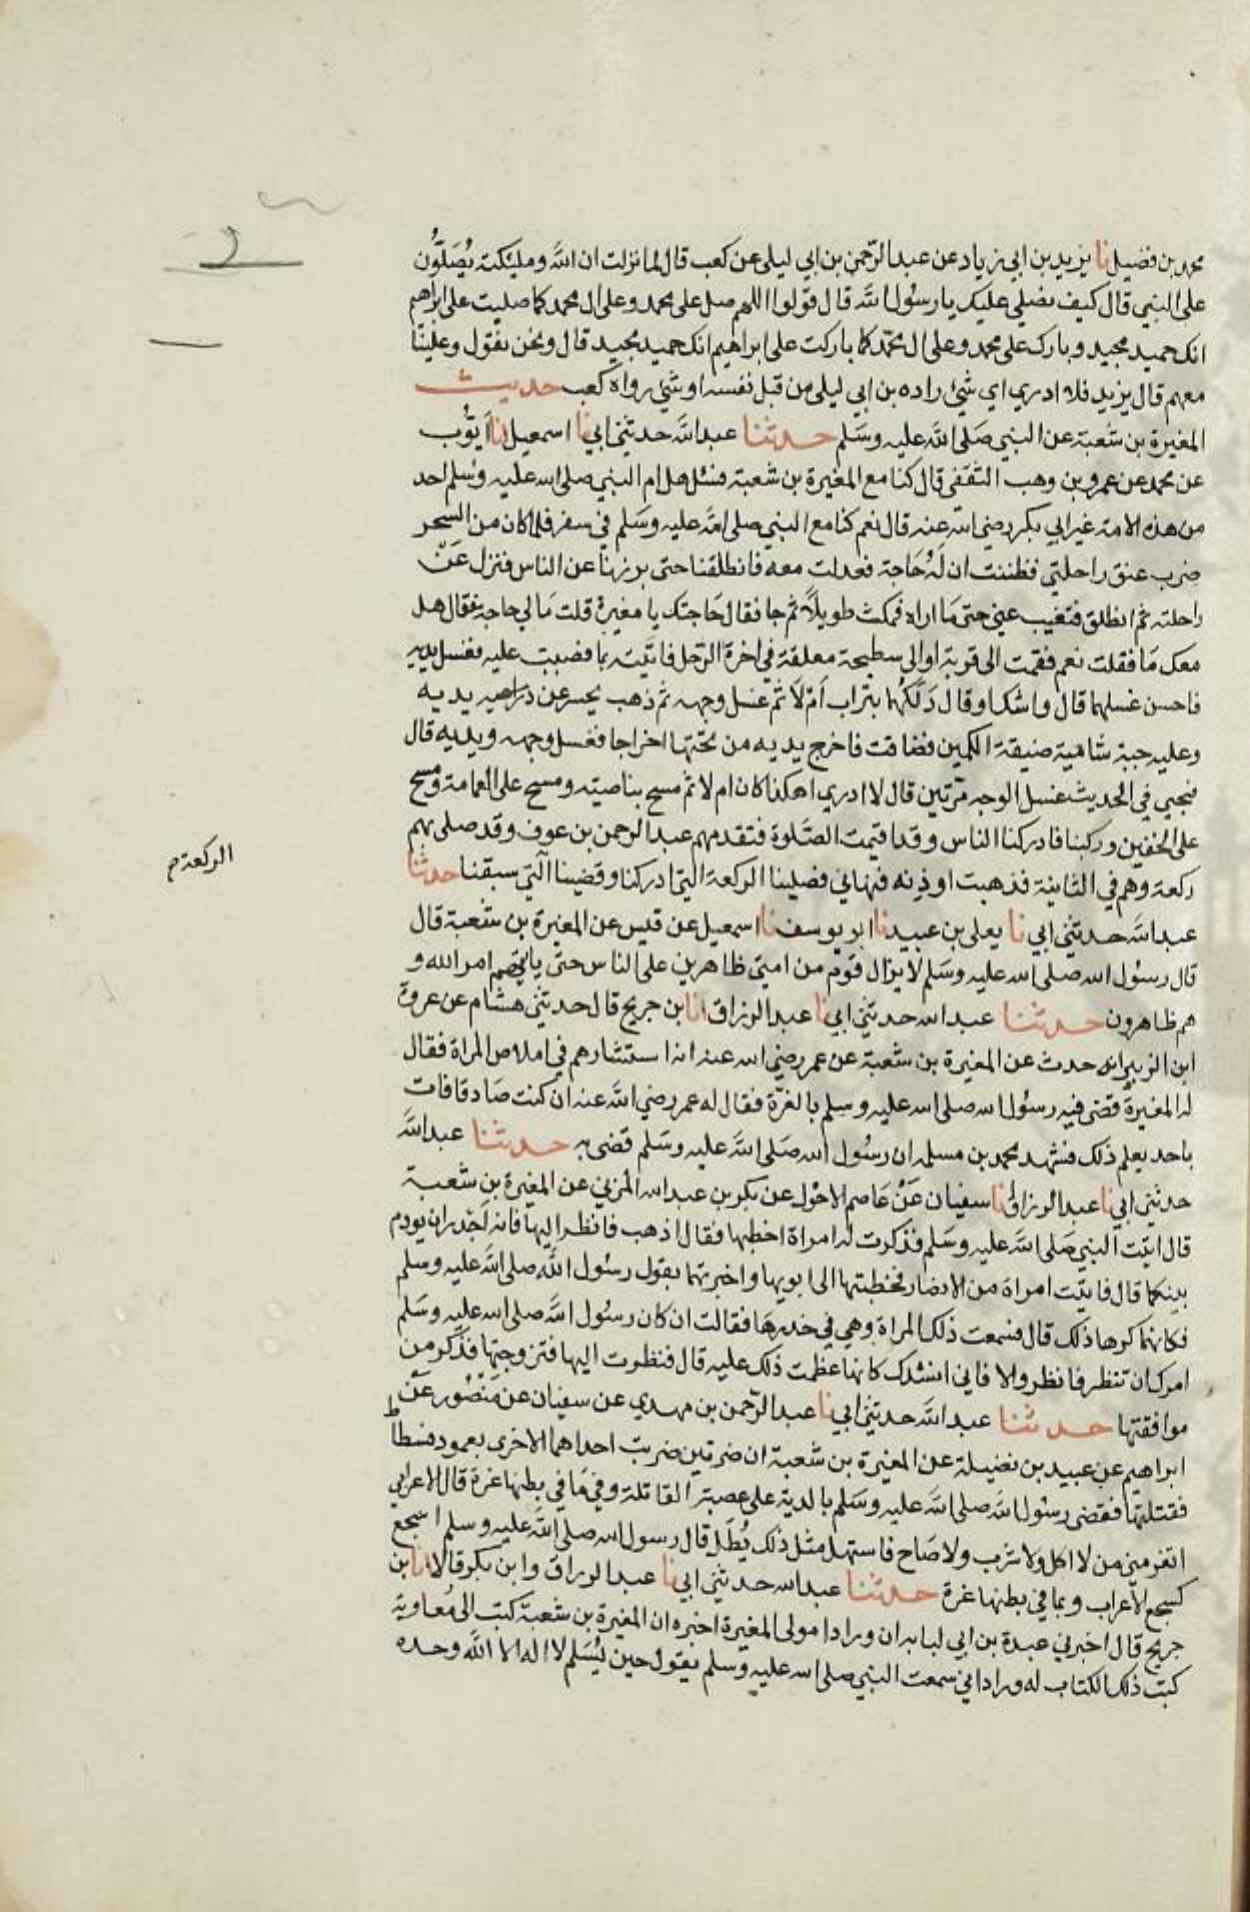 محمد بن فضيل نا يزيد بن ابي زياد عن عبد الرّحمن بن ابي ليلى عن كعب قال لما نزلت ان الله وملئكته يُصَلُّون
على النبي قال كيف نصلي عليك يا رسول الله قال قولوا اللهم صل على محمد وعلى ال محمد كما صليت على ابراهيم
انك حميد مجيد وبارك على محمد وعلى ال محمّد كما باركت على ابراهيم انك حميد مجيد قال ونحن نقول وعلينا
معهم قال يزيد فلا ادري اي شئ زاده بن ابي ليلى من قبل نفسه او شئ رواه كعب حديث
المغيرة بن شعبة عن النبي صَلى الله عليه وسَلم حدثنا عبد الله حدثني ابي نا اسمعيل انا أيّوب
عن محمد عن عمرو بن وهب الثقفى قال كنا مع المغيرة بن شعبة فسئل هل ام النبي صلى الله عليه وسلم احد
من هذه الامة غير ابي بكر رضي الله عنه قال نعم كنا مع النبي صلى الله عليه وسَلم في سفر فلما كان من السحر
ضرب عنق راحلتي فظننت ان لهُ حَاجة فعدلت معه فانطلقنا حتى برزنا عن الناس فنزل عَنْ
راحلته ثم انطلق فتغيب عني حتى مَا اراه فمكث طويلاً ثم جا فقال حَاجتك يا مغيرة قلت مَا لي حاجة فقال هل
معك مَا فقلت نعم فقمت الى قربة او الى سطيحة معلقة في اخرة الرّحل فاتيته بما فصببت عليه فغسل يديه
فاحسن غسلهما قال واشك اوقال دَلكهُما بتراب اَمْ لاَ ثم غسل وجهه ثم ذهب يحسر عن ذراعيه يديه
وعليه جبة شامية ضيقة الكمين فضاقت فاخرج يديه من تحتها اخراجا فغسل وجهه ويديه قال
فيجي في الحديث غسل الوجه مرّتين قال لا ادري اهكذا كان ام لا ثم مسح بناصيته ومسح على العمامة ومسح
على الخفين وركبنا فادركنا الناس وقد اقيمت الصّلوة فتقدمهم عبد الرحمن بن عوف وقد صلى بهم
الركعة م
ركعة وهم في الثانية فذهبت اوذنه فنهاني فصلينا الركعة التي ادركنا وقضينا التي سبقنا حدثنا
عبد الله حدثني ابي نا يعلى بن عبيد نا ابو يوسف نا اسمعيل عن قيس عن المغيرة بن شعبة قال
قال رسول الله صلى الله عليه وسَلم لا يزال قوم من امتى ظاهرين على الناس حتى ياتيهم امر الله و
هم ظاهرون حدثنا عبد الله حدثني ابي نا عبد الرزاق انا بن جريج قال حدثني هشام عن عروة
ابن الزبير انه حدث عن المغيرة بن شعبة عن عمر رضي الله عنه انه استشارهم في املاص المراة فقال
له المغيرة قضى فيه رسول الله صلى الله عليه وسلم بالغرّة فقال له عمر رضي الله عنه ان كنت صَادقا فات
باحد يعلم ذلك فشهد محمد بن مسلمه ان رسول الله صَلى الله عليه وسَلم قضى به حدثنا عبد الله
حدثني ابي نا عبد الرزاق نا سفيان عَنْ عَاصم الاحول عن بكر بن عبد الله المزني عن المغيرة بن شعبة
قال اتيت النبي صَلى الله عليه وسَلم فذكرت له امراة اخطبها فقال اذهب فانظر اليها فانه اجدر ان يودم
بينكما قال فاتيت امراة من الانصار فخطبتها الى ابويها واخبرتهما بقول رسول الله صلى الله عليه وسلم
فكانهما كرها ذلك قال فسمعت ذلك المراة وهي في خدرهَا فقالت ان كان رسول الله صلى الله عليه وسَلم
امرك ان تنظر فانظر والا فاني انشدك كانها عظمت ذلك عليه قال فنظرت اليها فتزوجتها فذكر من
موافقتها حدثنا عبد الله حدثني ابي نا عبد الرّحمن بن مهدي عن سفيان عن مَنْصُور عَنْ
ابراهيم عن عبيد بن نضيلة عن المغيرة بن شعبة ان ضرتين ضربت احداهما الاخرى بعمود فسطاط
فقتلتها فقضى رسول الله صلى الله عليه وسَلم بالدية على عصبة القاتلة وفي مَا في بطنها غرة قال الاعرابي
اتغرمني من لا اكل ولا شرب ولا صَاح فاستهل مثل ذلك يُطَل قال رسول الله صلى الله عليه وسلم اسجع
كسجع الاَعراب وبما في بطنها غرة حدثنا عبد الله حدثني ابي نا عبد الرزاق وابن بكر قالا انا بن
جريج قال اخبرني عبدة بن ابي لبابه ان ورادا مولى المغيرة اخبره ان المغيرة بن شعبة كتب الى مُعاوية
كتب ذلك الكتاب له وراد اني سمعت النبي صلى الله عليه وسلم يقول حين يُسَلم لا اله الا الله وحده